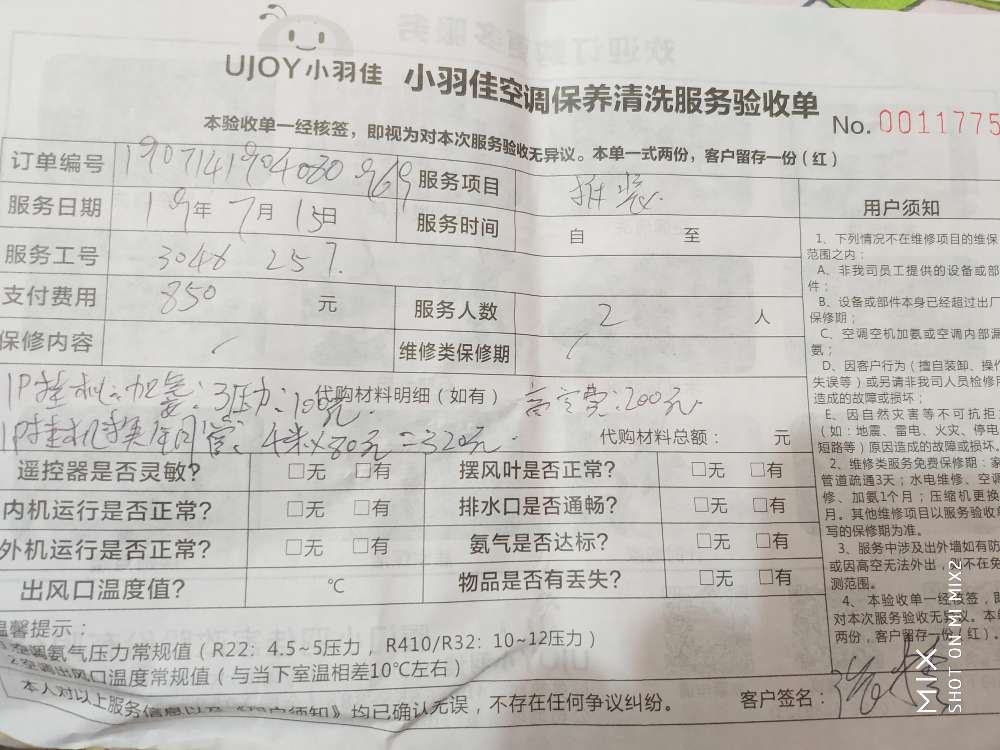 UJOY小羽佳 小羽佳空调保养清洗服务验收单
No. 0011775
本验收单一经核签，即视为对本次服务验收无异议。本单一式两份，客户留存一份（红）
订单编号 190714190408 969 服务项目 拆装
服务日期 19年7月15日 服务时间 自 至
服务工号 3046 257.
支付费用 850 元 服务人数 2 人
保修内容 / 维修类保修期 /
1P挂机：加氟：3压力：100元. 代购材料明细（如有） 高空费：200元
1P挂机换铜管：4米×80元=320元. 代购材料总额： 元
遥控器是否灵敏? □无 □有 摆风叶是否正常? □无 □有
内机运行是否正常? □无 □有 排水口是否通畅? □无 □有
外机运行是否正常? □无 □有 氨气是否达标? □无 □有
出风口温度值? ℃ 物品是否有丢失? □无 □有
温馨提示：
1空调氨气压力常规值（R22：4.5~5压力，R410/R32：10~12压力）
2空调出风口温度常规值（与当下室温相差10℃左右）
本人对以上服务信息以及《用户须知》均已确认无误，不存在任何争议纠纷。 客户签名：
用户须知
1、下列情况不在维修项目的维保
范围之内：
A、非我司员工提供的设备或部
件；
B、设备或部件本身已经超过出厂
保修期；
C、空调空机加氨或空调内部漏
氨；
D、因客户行为（擅自装卸、操作
失误等）或另请非我司人员检修
造成的故障或损坏；
E、因自然灾害等不可抗拒
（如：地震、雷电、火灾、停电
短路等）原因造成的故障或损坏。
2、维修类服务免费保修期：家
管道疏通3天；水电维修、空调
修、加氨1个月；压缩机更换
月。其他维修项目以服务验收单
写的保修期为准。
3、服务中涉及出外墙如有防
或因高空无法外出，则不在免
测范围。
4、本验收单一经核签，即
对本次服务验收无异议。本单
两份，客户留存一份（红）。
MIX
SHOT ON MI MIX2